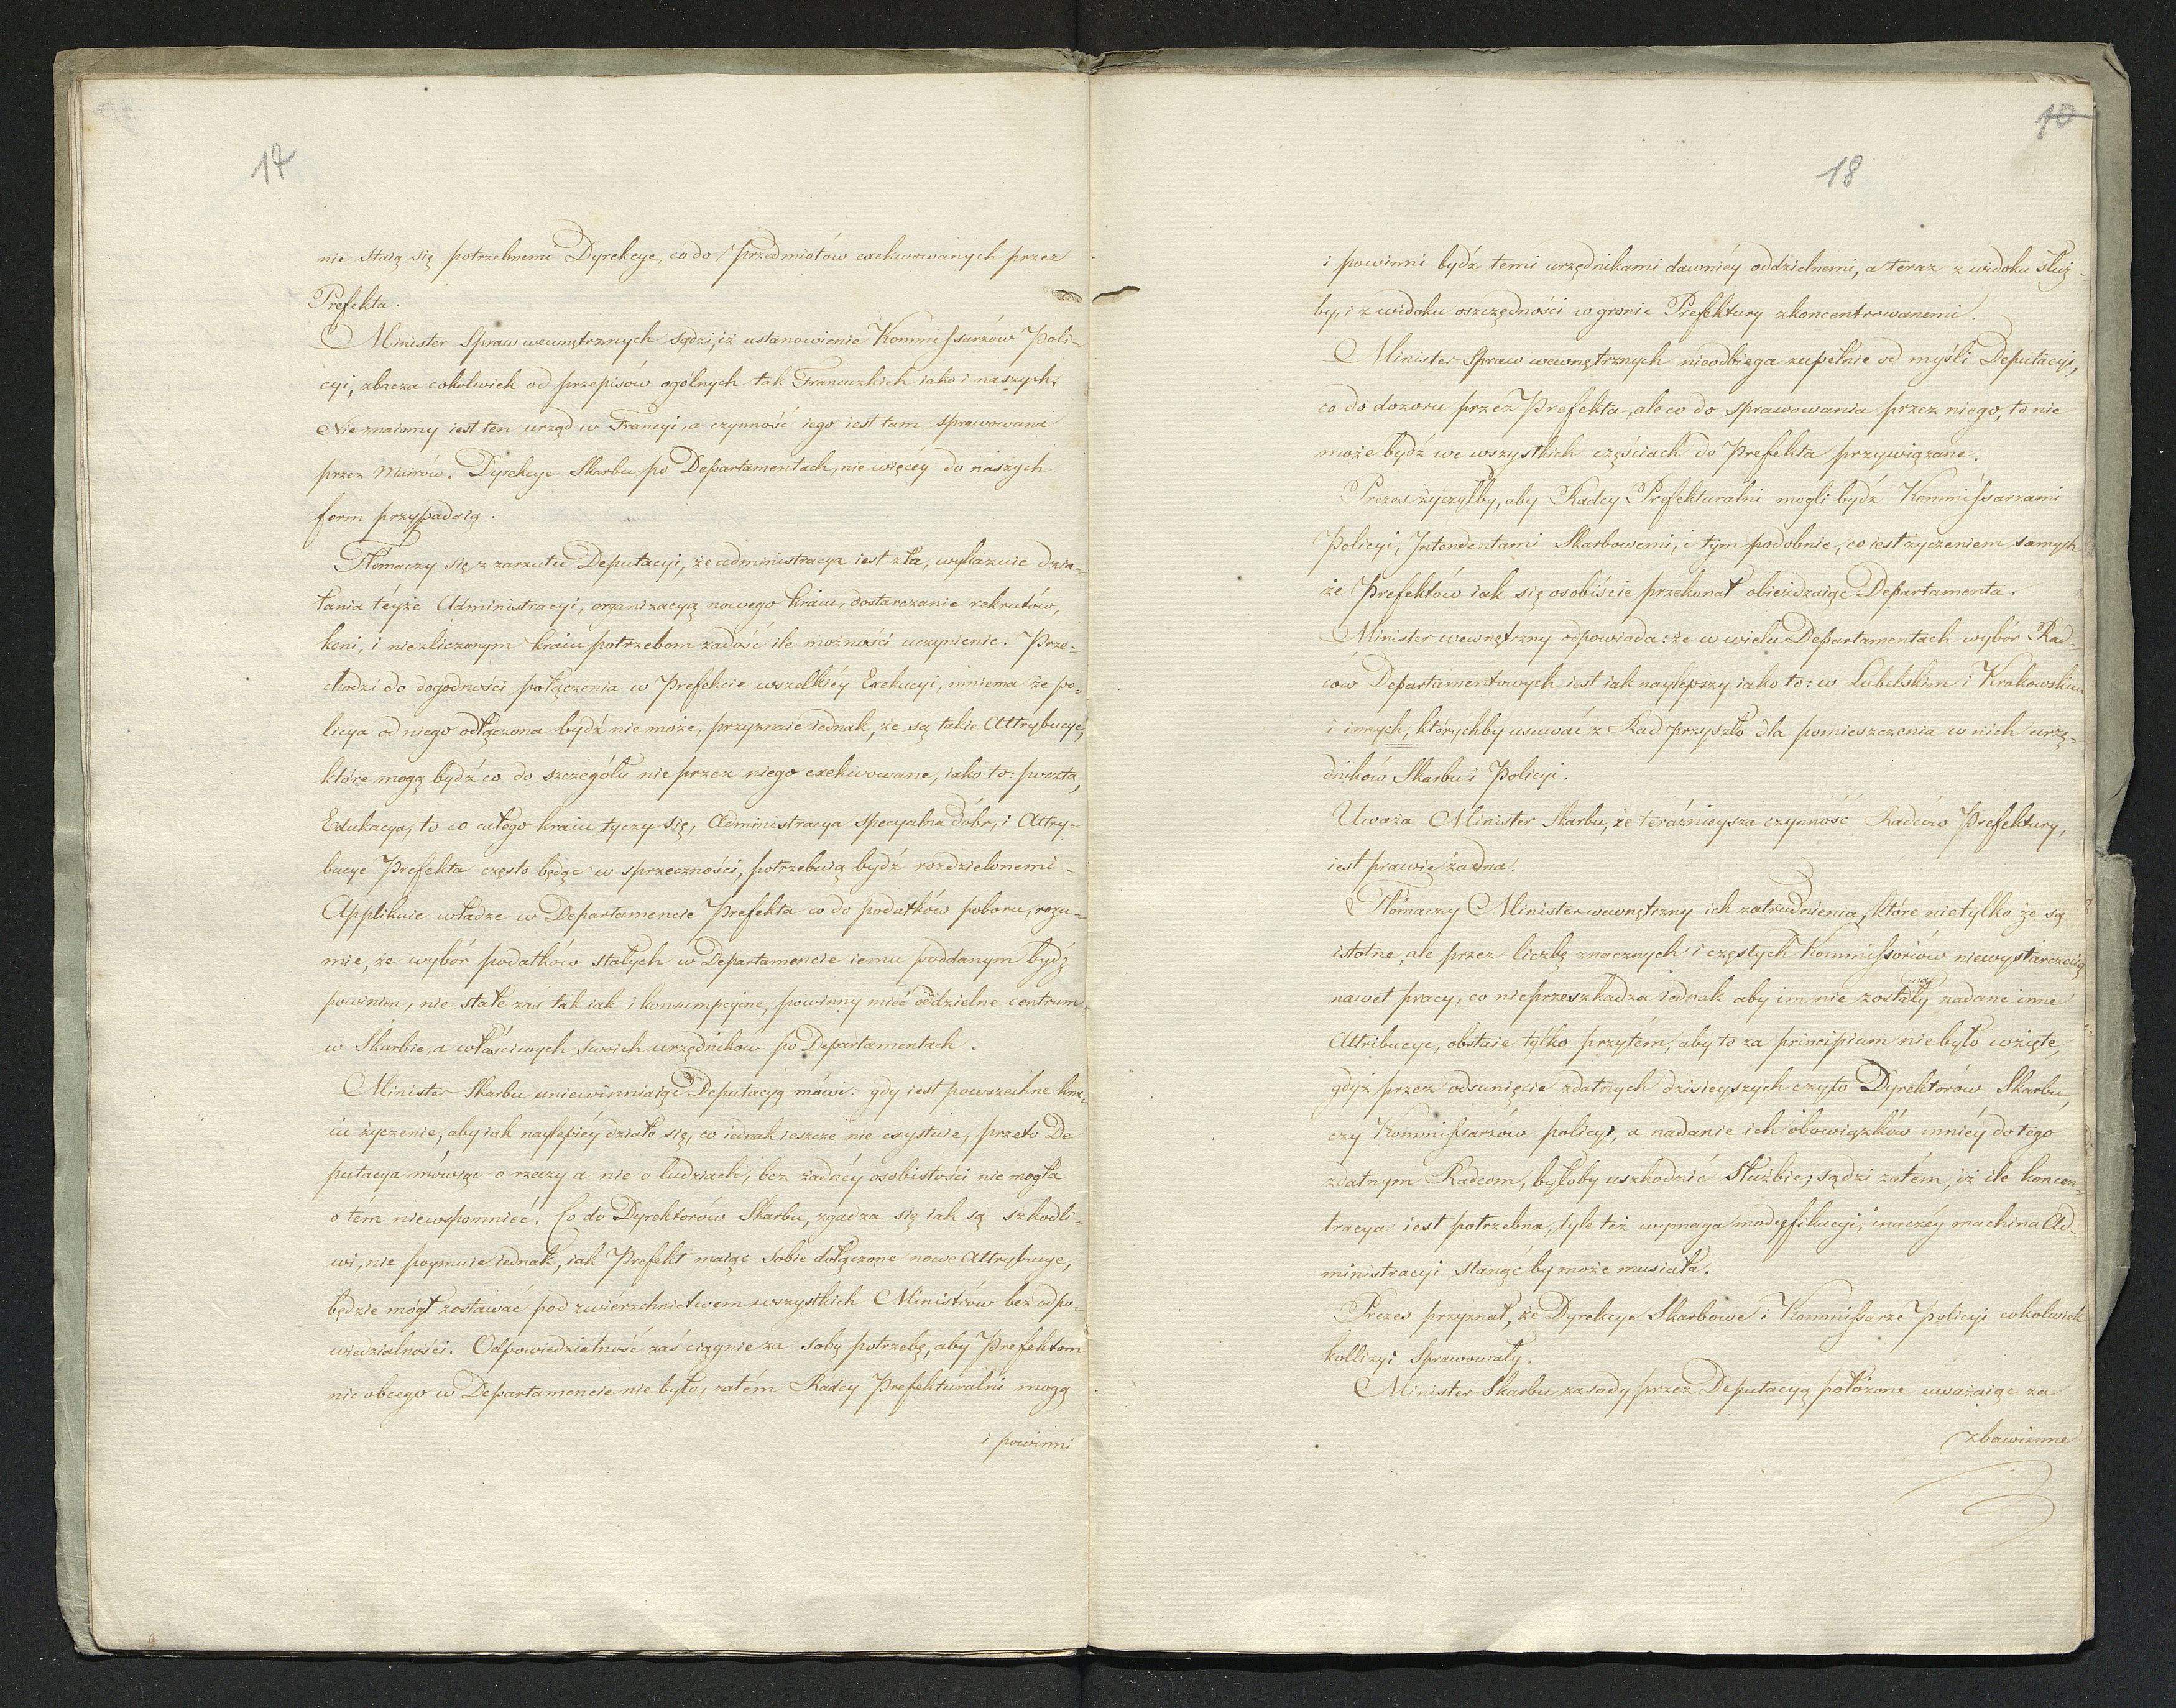 17
nie staią się potrzebnemi Dyrekcye, co do przedmiotów exekwowanych przez
Prefekta.
Minister Spraw wewnętrznych sądzi, iż ustanowienie Kommissarzów Poli-
cyi, zbacza cokolwiek od przepisów ogólnych tak Francuzkich iako i naszych.
Nieznaiomy iest ten urząd w Francyi, a czynność iego iest tam sprawowana
przez Mairów. Dyrekcye Skarbu po Departamentach, nie więcéy do naszych
form przypadaią.
Tłómaczy się z zarzutu Deputacyi, że administracya iest zła, wykazuie dzia-
łania téyże Administracyi, organizacyą nowego kraiu, dostarczanie rekrutów,
koni, i niezliczonym kraiu potrzebom zadość ile możności uczynienie. Prze-
chodzi do dogodności połączenia w Prefekcie wszelkiéy Exekucyi, mniema że po-
licya od niego odłączona bydź nie może, przyznaie iednak, że są takie Attrybucye,
które mogą bydź co do szczegółu nie przez niego exekwowane, iako to: poczta,
Edukacya, to co całego kraiu tyczy się, Administracya specyalna dóbr, i Attry-
bucye Prefekta często będąc w sprzeczności, potrzebuią bydź rozdzielonemi.
Applikuie władze w Departamencie Prefekta co do podatków poboru, rozu-
mie, że wybór podatków stałych w Departamencie iemu poddanym bydź
powinien, nie stałe zaś tak iak i konsumpcyine, powinny mieć oddzielne centrum
w Skarbie, a właściwych swoich urzędników po Departamentach.
Minister Skarbu uniewinniaiąc Deputacyą mówi: gdy iest powszechne kra-
iu życzenie, aby iak naylepiéy działo się, co iednak ieszcze nie exystuie, przeto De
putacya mówiąc o rzeczy a nie o ludziach, bez żadnéy osobistości nie mogła
o tém niewspomnieć. Co do Dyrektorów Skarbu, zgadza się iak są szkodli-
wi, nie poymuie iednak, iak Prefekt maiąc sobie dołączone nowe Attrybucye,
będzie mógł zostawać pod zwiérzchnictwem wszystkich Ministrów bez odpo-
wiedzialności. Odpowiedzialność zaś ciągnie za sobą potrzebę, aby Prefektom
nic obcego w Departamencie nie było, zatém Radcy Prefekturalni mogą
i powinni
10
18
i powinni bydź temi urzędnikami dawniéy oddzielnemi, a teraz z widoku służ-
by, i z widoku oszczędności w gronie Prefektury zkoncentrowanemi.
Minister Spraw wewnętrznych nieodbiega zupełnie od myśli Deputacyi,
co do dozoru przez Prefekta, ale co do sprawowania przez niego, to nie
może bydź we wszystkich częściach do Prefekta przywiązane.
Prezes życzyłby, aby Radcy Prefekturalni mogli bydź Kommissarzami
Policyi, Intendentami Skarbowemi, i tym podobnie, co iest życzeniem samych
że Prefektów iak się osobiście przekonał obieżdzaiąc Departamenta.
Minister wewnętrzny odpowiada: że w wielu Departamentach wybór Rad-
ców Departamentowych iest iak naylepszy iako to: w Lubelskim i Krakowskim
i innych, którychby usuwać z Rad przyszło dla pomieszczenia w nich urzę-
dników Skarbu i Policyi.
Uważa Minister Skarbu, że teráźnieysza czynność Radców Prefektury,
iest prawie żadna.
Tłómaczy Minister wewnętrzny ich zatrudnienia, które nietylko że są
istotne, ale przez liczbę znacznych i częstych Kommissoriów niewystarczaią
nawet pracy, co nieprzeszkadza iednak aby im nie zostały nadane inne
Attribucye, obstaie tylko przytém, aby to za principium niebyło wzięte,
gdyż przez odsunięcie zdatnych dzisieyszych czyto Dyrektorów Skarbu,
czy Kommissarzów policyi, a nadanie ich obowiązków mniéy do tego
zdatnym Radcom, byłoby uszkodzić służbie, sądzi zatém, iż ile koncen-
tracya iest potrzebna, tyle też wymaga modyfikacyi, inaczéy machina Ad-
ministracyi stanąćby może musiała.
Prezes przyznał, że Dyrekcye Skarbowe i Kommissarze policyi cokolwiek
kollizyi sprawowały.
Minister Skarbu zasady przez Deputacyą położone uważaiąc za
zbawienne